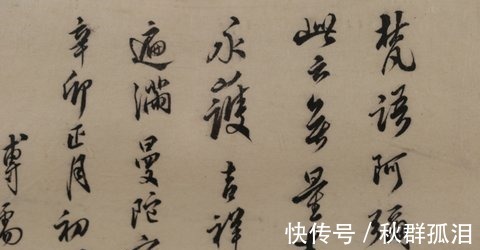 梵语阿弥
此云無量
永護吉祥
遍滿曼陀
辛卯正月初
溥儒
快传号 / 秋群孤泪